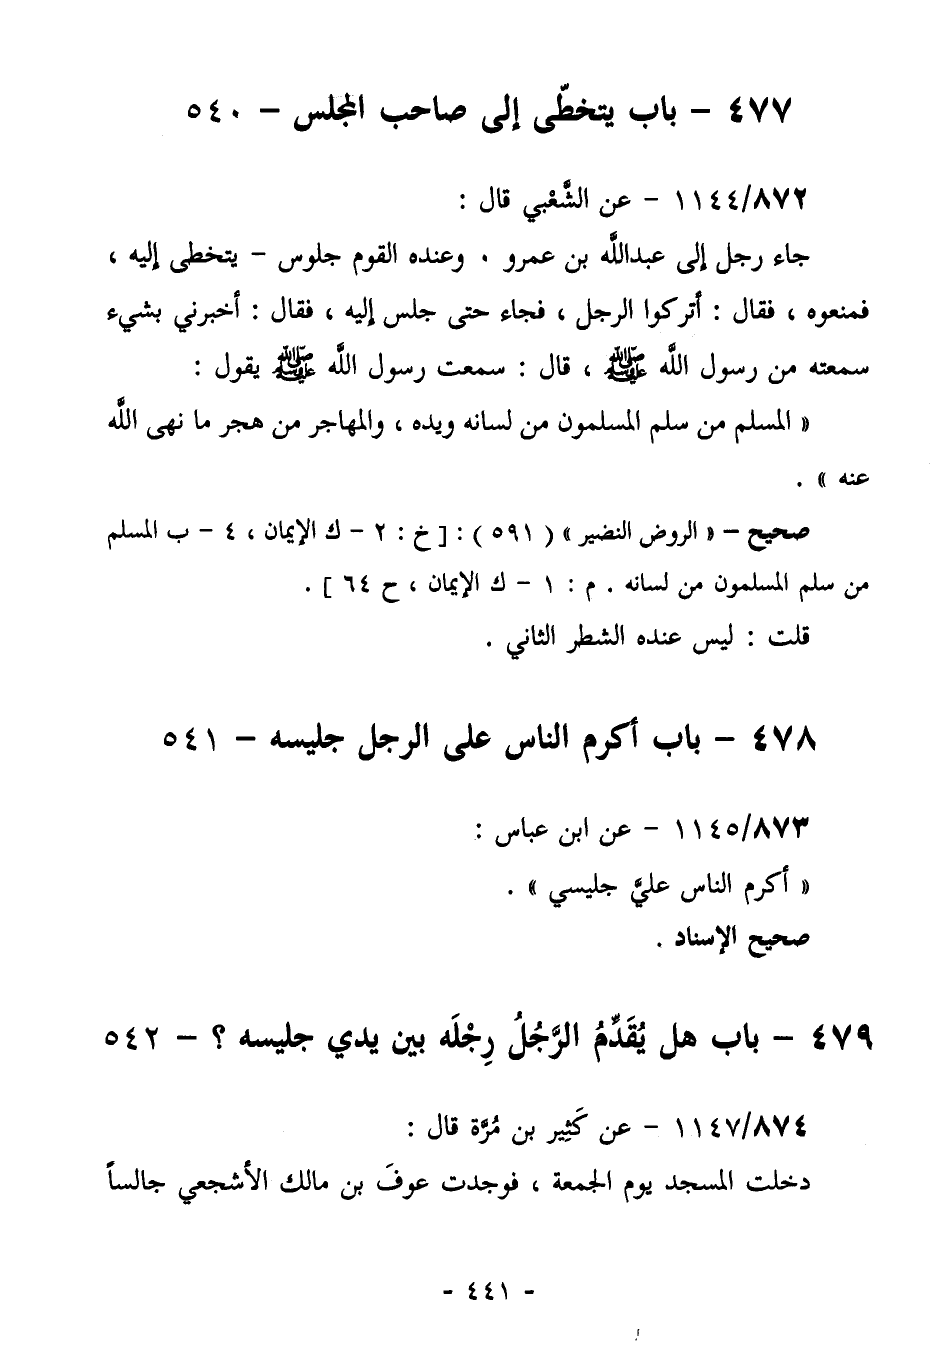 ٤٧٧ - باب يتخطّى إلى صاحب المجلس - ٥٤٠
١١٤٤/٨٧٢ - عن الشَّعْبي قال :
جاء رجل إلى عبدالله بن عمرو . وعنده القوم جلوس - يتخطى إليه ،
فمنعوه ، فقال : أتركوا الرجل ، فجاء حتى جلس إليه ، فقال : أخبرني بشيء
سمعته من رسول الله ﷺ ، قال : سمعت رسول الله ﷺ يقول :
« المسلم من سلم المسلمون من لسانه ويده ، والمهاجر من هجر ما نهى الله
عنه » .
صحيح - « الروض النضير » ( ٥٩١ ) : [ خ : ٢ - ك الإيمان ، ٤ - ب المسلم
من سلم المسلمون من لسانه . م : ١ - ك الإيمان ، ح ٦٤ ] .
قلت : ليس عنده الشطر الثاني .
٤٧٨ - باب أكرم الناس على الرجل جليسه - ٥٤١
١١٤٥/٨٧٣ - عن ابن عباس :
« أكرم الناس عليَّ جليسي » .
صحيح الإسناد .
٤٧٩ - باب هل يُقَدِّمُ الرَّجُلُ رِجْلَه بين يدي جليسه ؟ - ٥٤٢
١١٤٧/٨٧٤ - عن كَثِير بن مُرَّة قال :
دخلت المسجد يوم الجمعة ، فوجدت عوفَ بن مالك الأشجعي جالساً
- ٤٤١ -